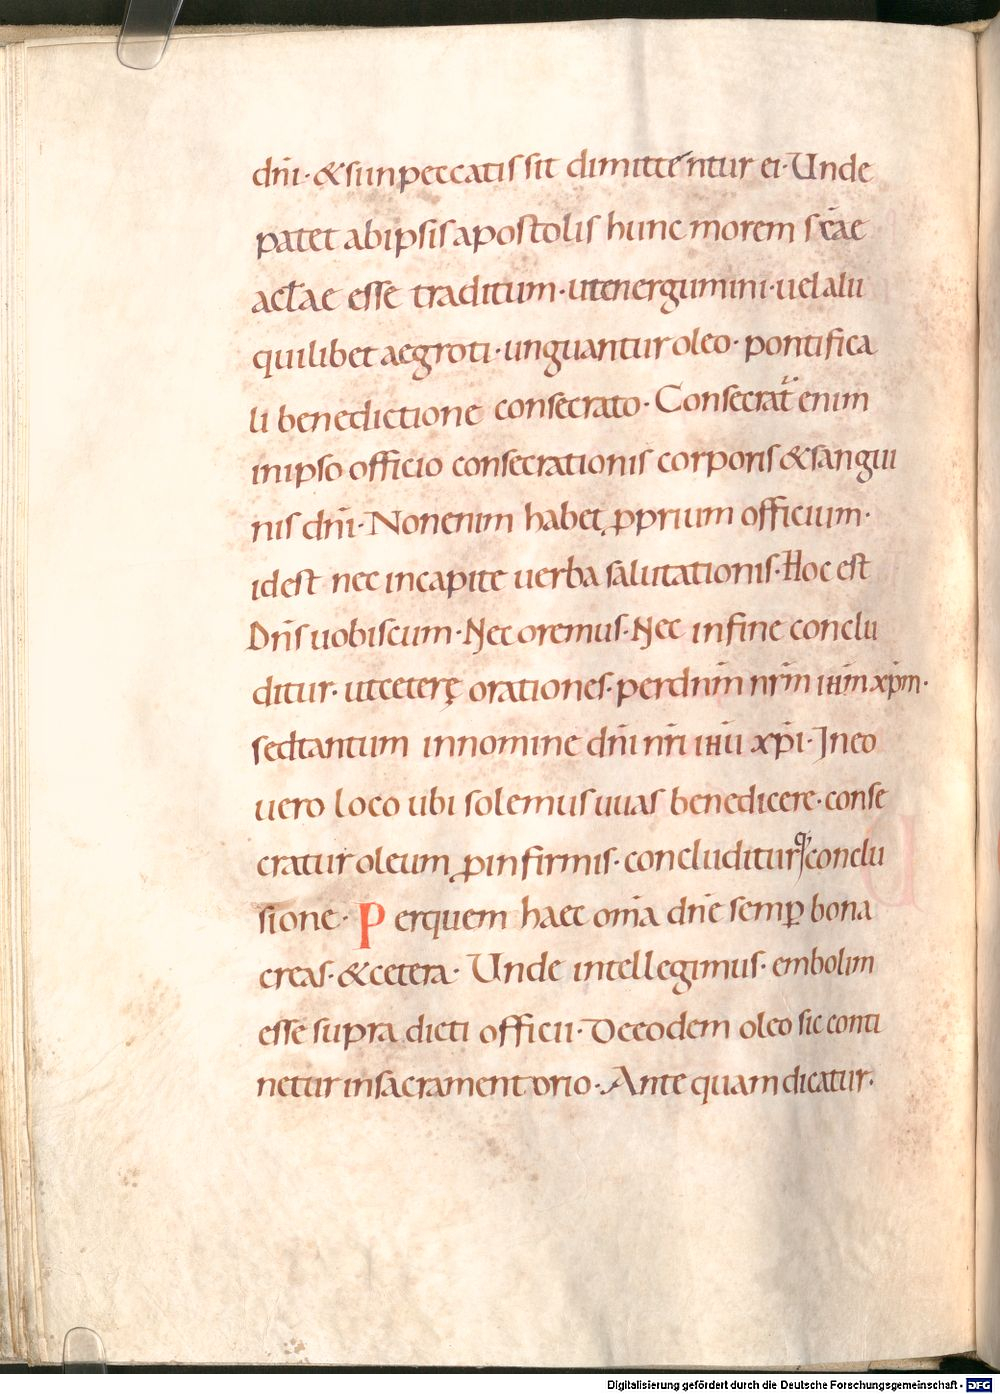 dn̄i· &siinpeccatis sit dimittentur ei· Unde
patet abipsis apostolis hunc morem sc̄ae
aeƚae esse traditum· utenergumini· uel alii
quilibet aegroti· unguantur oleo· pontifica
li benedictione consecrato· Consecrat̄ enim
inipso officio consecrationis corporis &sangui
nis dn̄i· Non enim habet ꝓprium officium·
idest nec incapite uerba salutationis· Hoc est
Dn̄s uobiscum· Nec oremus· Nec infine conclu
ditur· utceterę orationes· per dnm̄ nrm̄ ihm̄ xp̄m·
sed tantum innomine dn̄i nr̄i ih̄u xp̄i· Ineo
uero loco ubi solemus uuas benedicere· conse
cratur oleum ꝓinfirmis· concluditurq; conclu
sione· Per quem haec om̄ia dn̄e semꝑ bona
creas· &cetera· Unde intellegimus· embolim
esse supra dicti officii· De eodem oleo sic conti
netur insacramentorio· Ante quam dicatur·
Digitalisierung gefördert durch die Deutsche Forschungsgemeinschaft - DFG